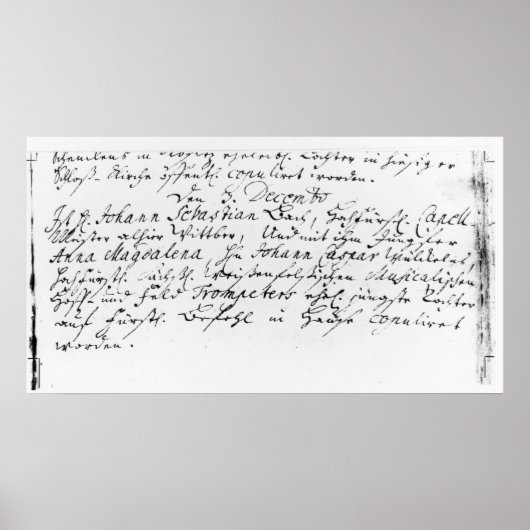 Schloß-Kirche öffentl. copuliret worden.
Den 3. Decembr
Ist H. Johann Sebastian Bach, HochFürstl. Capell-
Meister alhier Wittber, Und mit ihm Jungfer
Anna Magdalena, H. Johann Caspar Wülckens,
HochFürstl. Sächß. Weißenfelsischen Musicalischen
Hoff- und Feld Trompeters ehel. jüngste Tochter
auf Fürstl. Befehl in Hause copuliret
worden.